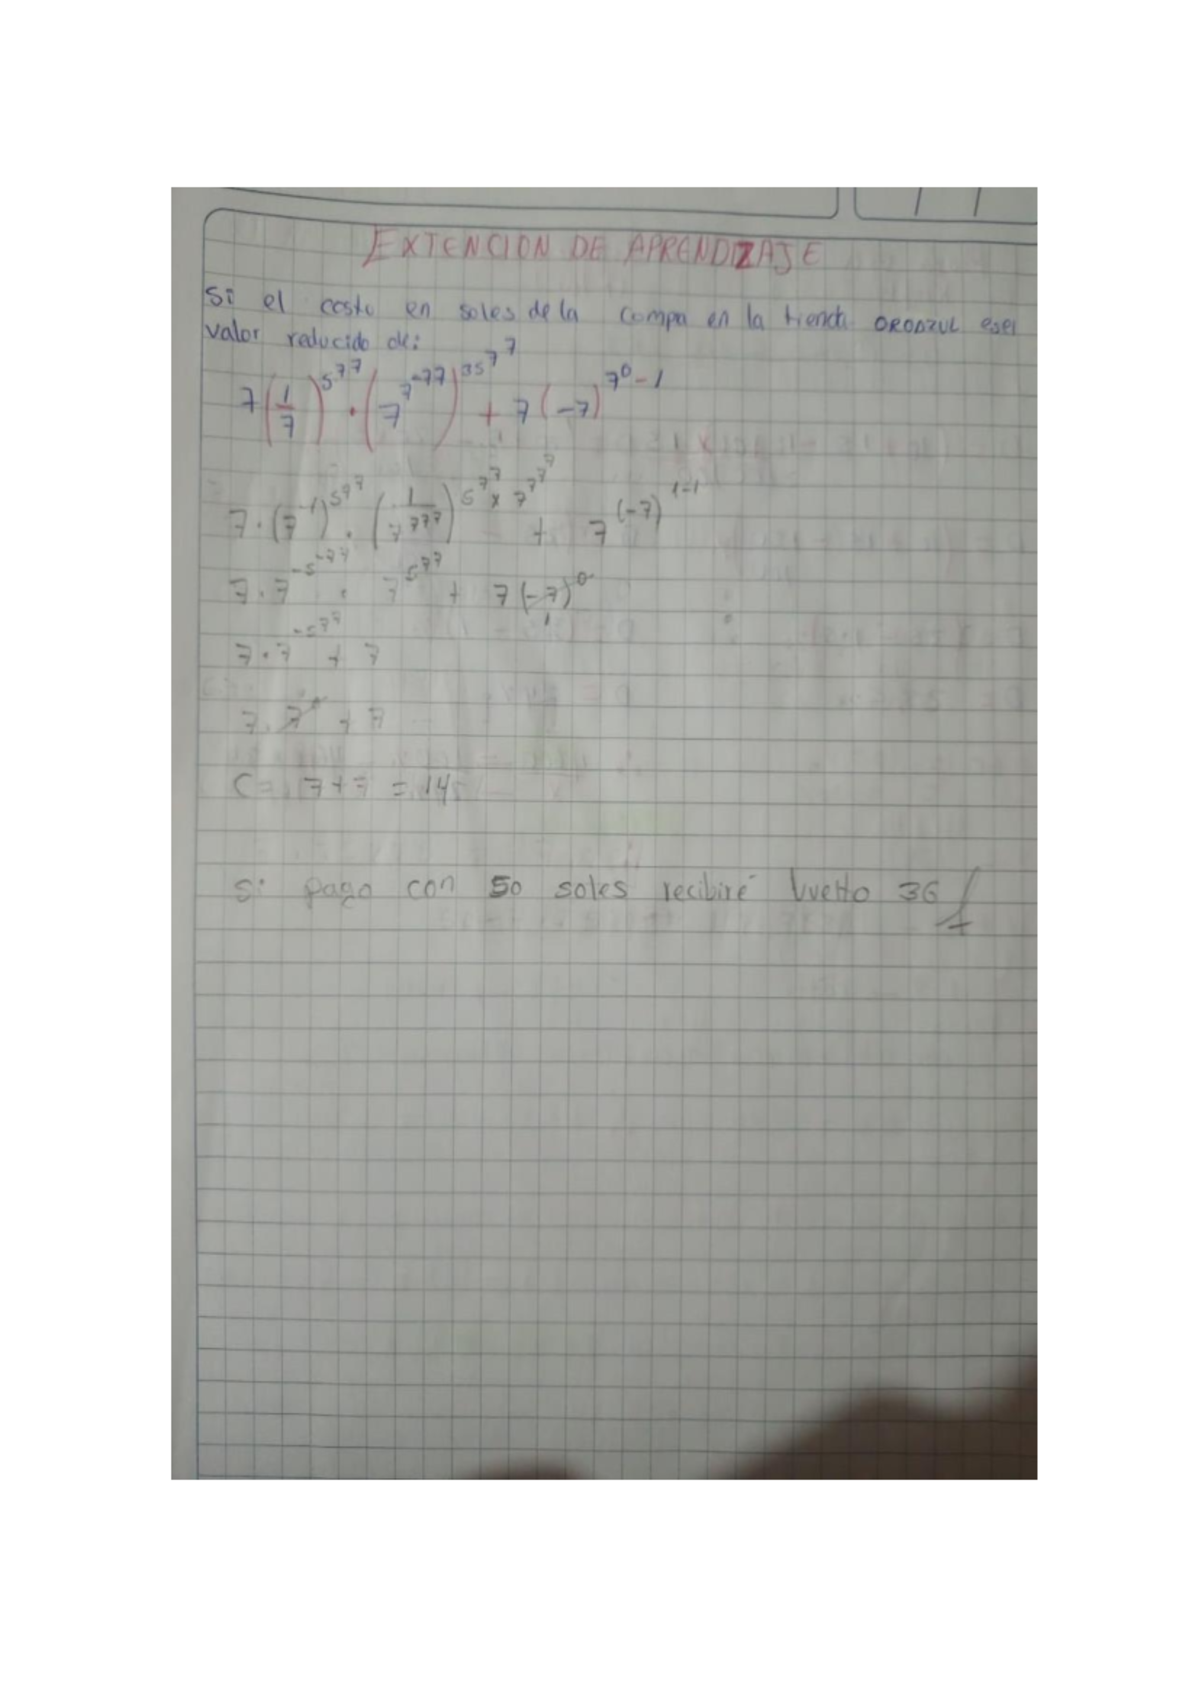 EXTENCION DE APRENDIZAJE
Si el costo en soles de la compa en la tienda OROAZUL es el
valor reducido de:
7(1/7)^5^7^7 · (7^7^-77)^35^7^7 + 7(-7)^7^0-1
7·(7^-1)^5^7^7 · (1/7^777)^5^7^7 x 7^7^7^7 + 7(-7)^1-1
7·7^-5^-77 · 7^5^77 + 7(-7)^0 1
7·7^-5^77 + 7
7·7 + 7
C = 7+7 = 14
Si pago con 50 soles recibiré vuelto 36